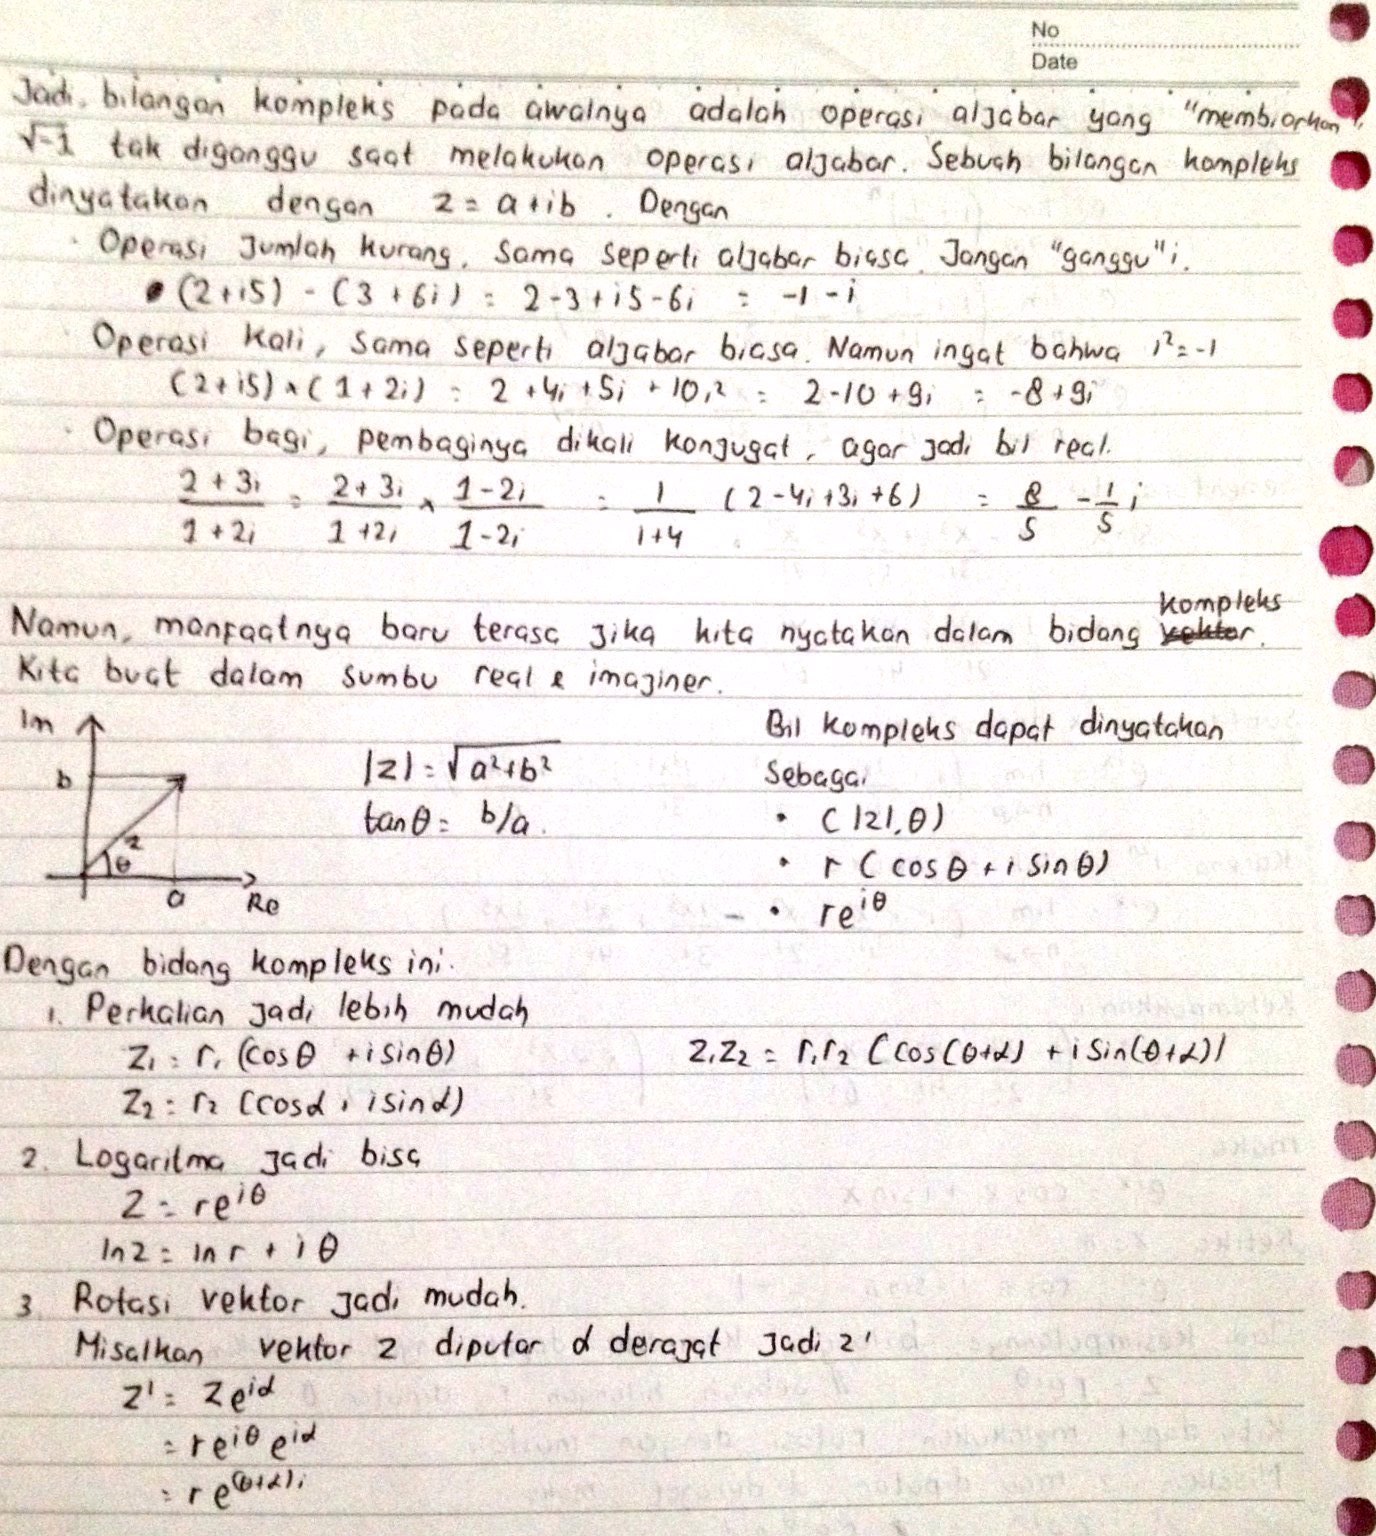 No
Date
Jadi, bilangan kompleks pada awalnya adalah operasi aljabar yang "membiarkan"
√-1 tak diganggu saat melakukan operasi aljabar. Sebuah bilangan kompleks
dinyatakan dengan z = a+ib. Dengan
· Operasi Jumlah kurang, sama seperti aljabar biasa. Jangan "ganggu" i.
• (2+i5) - (3+6i) = 2-3+i5-6i = -1-i
· Operasi Kali, sama seperti aljabar biasa. Namun ingat bahwa i²=-1
(2+i5)×(1+2i) = 2+4i+5i+10i² = 2-10+9i = -8+9i
· Operasi bagi, pembaginya dikali konjugat, agar jadi bil real.
(2+3i)/(1+2i) = (2+3i)/(1+2i) × (1-2i)/(1-2i) = 1/(1+4) (2-4i+3i+6) = 8/5 - 1/5 i
kompleks
Namun, manfaatnya baru terasa jika kita nyatakan dalam bidang vektor.
Kita buat dalam sumbu real & imajiner.
Im
b
z
θ
a
Re
|z| = √a²+b²
tanθ = b/a.
Bil kompleks dapat dinyatakan
sebagai
• (|z|,θ)
• r(cosθ + i sinθ)
• re^iθ
Dengan bidang kompleks ini.
1. Perkalian jadi lebih mudah
Z₁ = r₁(cosθ + i sinθ) Z₁Z₂ = r₁r₂(cos(θ+α) + i sin(θ+α))
Z₂ = r₂(cosα + i sinα)
2. Logaritma jadi bisa
Z = re^iθ
ln z = ln r + iθ
3. Rotasi vektor jadi mudah.
Misalkan vektor z diputar α derajat jadi z'
Z' = Ze^iα
= re^iθ e^iα
= re^(θ+α)i